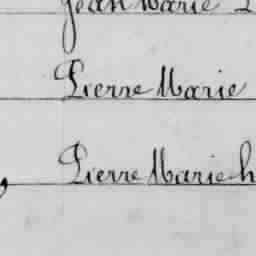 Jean Marie
Pierre Marie
Pierre Marie h